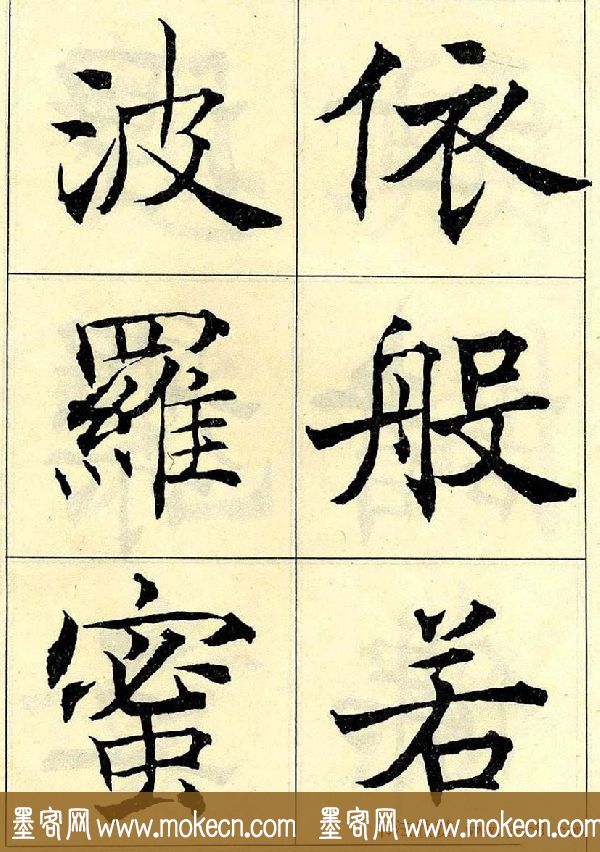 依般若
波羅蜜
墨客网 www.mokecn.com 墨客网 www.mokecn.com